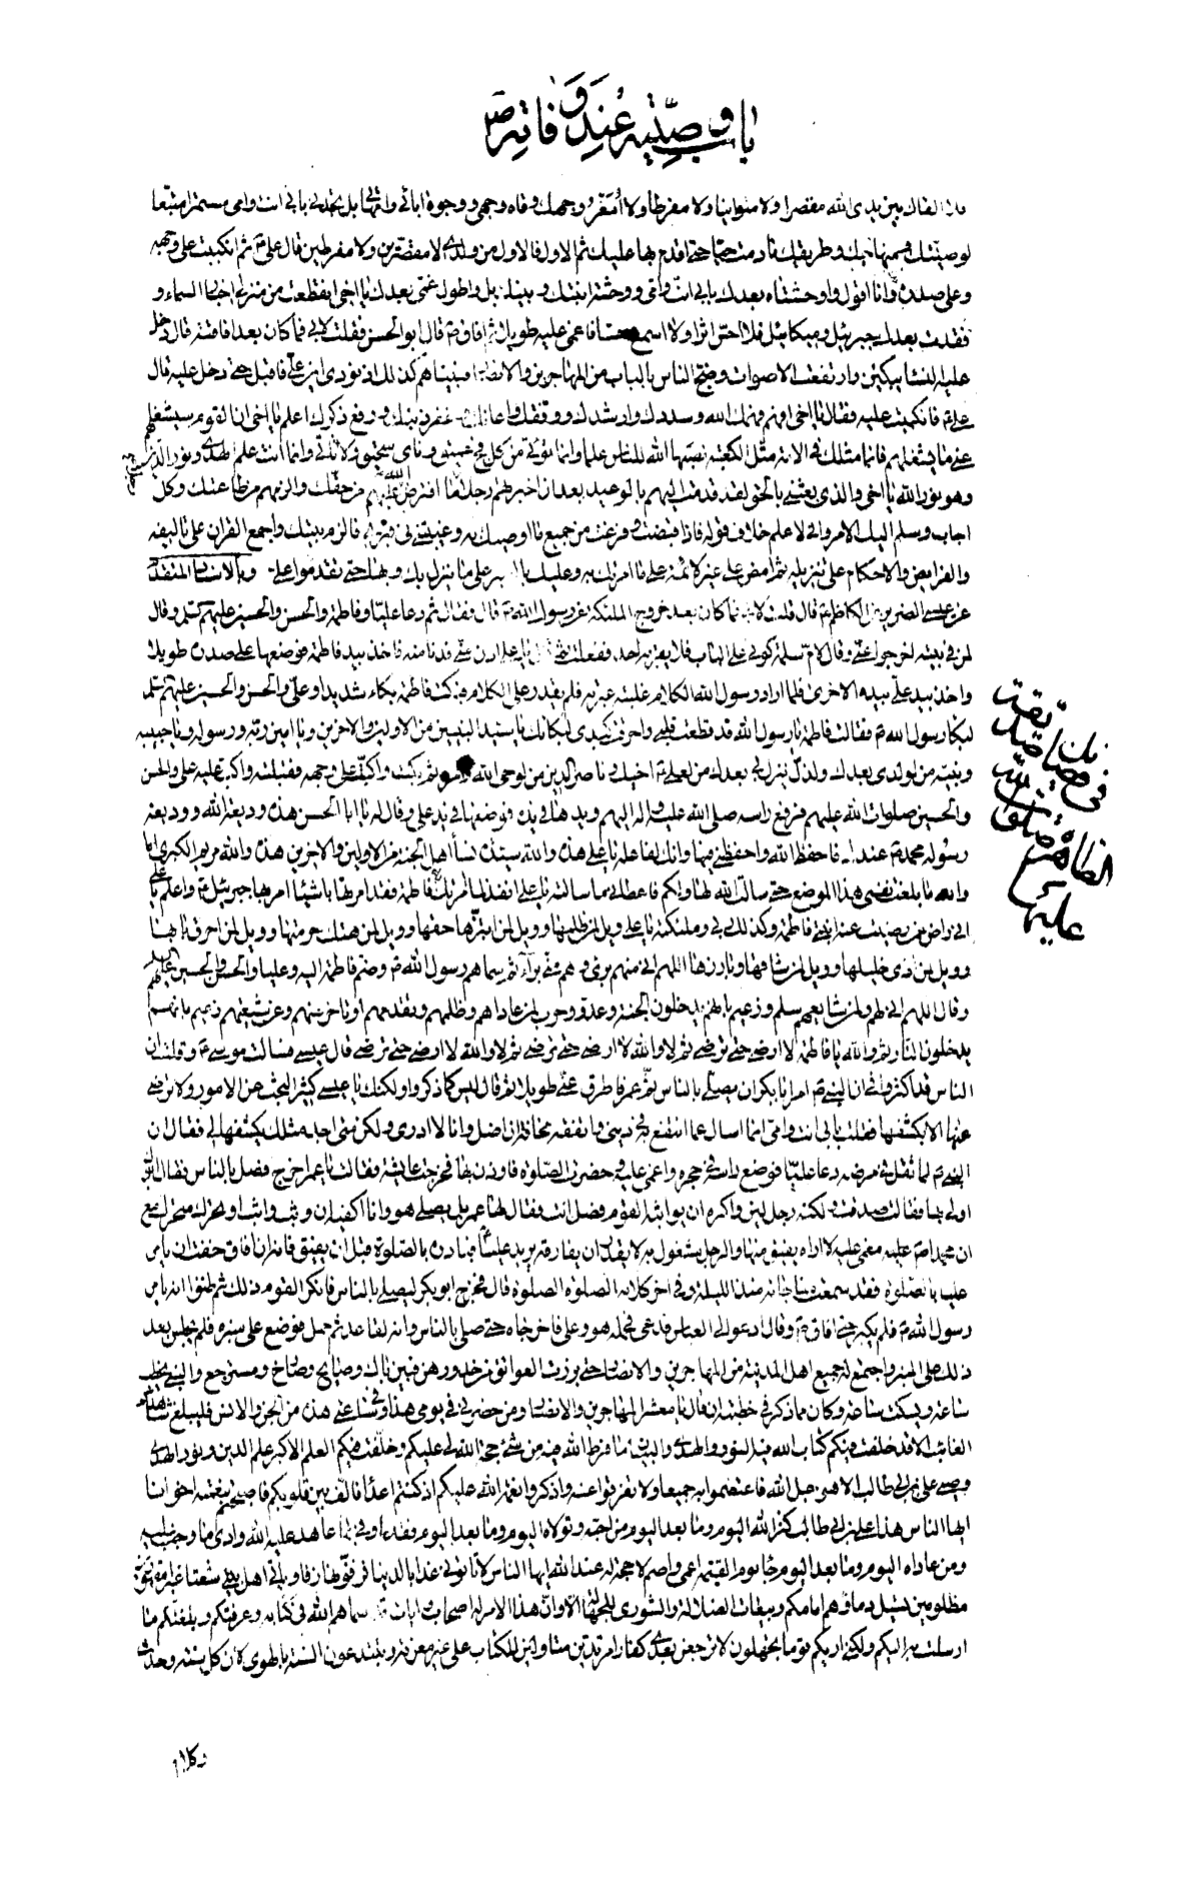 باب وصيته عند وفاته ص
فلا القاك بين يدى الله مقصرا ولا متوانيا ولا مفرطا ولا وجهك وقاه وجهى ووجوه ابائى وامهاتى بل تجدنى بابى انت وامى مستمرا متبعا
لوصيتك ومنهاجك وطريقك ما دمت حيا حتى اقدم بها عليك ثم الاول فالاول من ولدى لا مقصرين ولا مفرطين قال على ع ثم انكببت على وجهه
وعلى صدره وانا اقول واوحشتاه بعدك بابى انت وامى ووحشة ابنتك وبنيك بل واطول غمى بعدك يا اخى انقطعت من منزلى اخبار السماء و
فقدت بعدك جبرئيل وميكائيل فلا احس اثرا ولا اسمع حسا فاغمى عليه طويلا ثم افاق ص قال ابو الحسن فقلت لابى فما كان بعد افاقته قال دخل
عليه النساء يبكين وارتفعت الاصوات وضج الناس بالباب من المهاجرين والانصار فبيناهم كذلك اذ نودى اين على فاقبل حتى دخل عليه قال
على ع فانكببت عليه فقال يا اخى افهم فهمك الله وسددك وارشدك ووفقك واعانك وغفر ذنبك ورفع ذكرك اعلم يا اخى ان القوم سيشغلهم
عنى ما يشغلهم فانما مثلك فى الامة مثل الكعبة نصبها الله للناس علما وانما تؤتى من كل فج عميق ونأى سحيق ولا تأتى وانما انت علم الهدى ونور الدين
وهو نور الله يا اخى والذى بعثنى بالحق لقد قدمت اليهم بالوعيد بعد ان اخبرتهم رجلا رجلا ما افترض الله عليهم من حقك والزمهم من طاعتك وكل
اجاب وسلم اليك الامر وانى لاعلم خلاف قولهم فاذا قبضت وفرغت من جميع ما اوصيك به وغيبتنى فى قبرى فالزم بيتك واجمع القران على تاليفه
والفرايض والاحكام على تنزيله ثم امض على غير لائمة على ما امرتك به وعليك بالصبر على ما ينزل بك وبها حتى تقدموا على وبالاسناد المتقدم
عن عيسى الضرير عن الكاظم ع قال قلت لابى فما كان بعد خروج الملئكة عن رسول الله ص قال فقال ثم دعا عليا وفاطمة والحسن والحسين عليهم السلام وقال
لمن فى بيته اخرجوا عنى وقال لام سلمة كونى على الباب فلا يقربه احد ففعلت ثم قال يا على ادن منى فدنا منه فاخذ بيد فاطمة فوضعها على صدره طويلا
واخذ بيد على بيده الاخرى فلما اراد رسول الله الكلام غلبته عبرته فلم يقدر على الكلام فبكت فاطمة بكاء شديدا وعلى والحسن والحسين عليهم السلام
لبكاء رسول الله ص فقالت فاطمة يا رسول الله قد قطعت قلبى واحرقت كبدى لبكائك يا سيد النبيين من الاولين والاخرين ويا امين ربه ورسوله ويا حبيبه
ونبيه من لولدى بعدك ولذل ينزل بى بعدك من لعلى ع اخيك وناصر الدين من لوحى الله وامره ثم بكت واكبت على وجهه فقبلته واكب عليه على والحسن
والحسين صلوات الله عليهم فرفع راسه صلى الله عليه واله اليهم ويدها فى يده فوضعها فى يد على وقال له يا ابا الحسن هذه وديعة الله ووديعة
رسوله محمد ص عندك فاحفظ الله واحفظنى فيها وانك لفاعله يا على هذه والله سيدة نساء اهل الجنة من الاولين والاخرين هذه والله مريم الكبرى اما
والله ما بلغت نفسى هذا الموضع حتى سالت الله لها ولكم فاعطانى ما سالته يا على انفذ لما امرتك به فاطمة فقد امرتها باشياء امر بها جبرئيل ع واعلم يا على
انى راض عمن رضيت عنه ابنتى فاطمة وكذلك ربى وملئكته يا على ويل لمن ظلمها وويل لمن ابتزها حقها وويل لمن هتك حرمتها وويل لمن احرق بابها
وويل لمن اذى خليلها وويل لمن شاقها وبارزها اللهم انى منهم برئ وهم منى براء ثم سماهم رسول الله ص وضم فاطمة اليه وعليا والحسن والحسين عليهم السلام
وقال اللهم انى لهم ولمن شايعهم سلم وزعيم بانهم يدخلون الجنة وعدو وحرب لمن عاداهم وظلمهم وتقدمهم او تاخر عنهم وعن شيعتهم زعيم بانهم
يدخلون النار ثم والله يا فاطمة لا ارضى حتى ترضى ثم لا والله لا ارضى حتى ترضى ثم لا والله لا ارضى حتى ترضى قال عيسى فسالت موسى ع وقلت ان
الناس قد اكثروا فى ان النبى ص امر ابا بكر ان يصلى بالناس ثم عمر فاطرق عنى طويلا ثم قال ليس كما ذكروا ولكنك يا عيسى كثير البحث عن الامور ولا ترضى
عنها الا بكشفها فقلت بابى انت وامى انما اسال عما انتفع به فى دينى واتفقه مخافة ان اضل وانا لا ادرى ولكن متى اجد مثلك يكشفها لى فقال ان
النبى ص لما ثقل فى مرضه دعا عليا فوضع راسه فى حجره واغمى عليه وحضرت الصلوة فاوذن بها فخرجت عايشة فقالت يا عمر اخرج فصل بالناس فقال ابوك
اولى بها فقالت صدقت ولكنه رجل لين واكره ان يواثبه القوم فصل انت فقال لها عمر بل يصلى هو وانا اكفيه ان وثب واثب او تحرك متحرك مع
ان محمدا ص مغمى عليه لا اراه يفيق منها والرجل مشغول به لا يقدر ان يفارقه يريد عليا فبادره بالصلوة قبل ان يفيق فانه ان افاق خفت ان يامر
عليا بالصلوة فقد سمعت مناجاته منذ الليلة وفى اخر كلامه الصلوة الصلوة قال فخرج ابو بكر ليصلى بالناس فانكر القوم ذلك ثم ظنوا انه بامر
رسول الله ص فلم يكبر حتى افاق ص وقال ادعوا لى العباس فدعى فحمله هو وعلى فاخرجاه حتى صلى بالناس وانه لقاعد ثم حمل فوضع على منبره فلم يجلس بعد
ذلك على المنبر واجتمع له جميع اهل المدينة من المهاجرين والانصار حتى برزت العواتق من خدورهن فبين باك وصايح وصارخ ومسترجع والنبى يخطب
ساعة ويسكت ساعة وكان مما ذكر فى خطبته ان قال يا معشر المهاجرين والانصار ومن حضرنى فى يومى هذا وفى ساعتى هذه من الجن والانس فليبلغ شاهدكم
الغائب الا قد خلفت فيكم كتاب الله فيه النور والهدى والبيان ما فرط الله فيه من شئ حجة الله لى عليكم وخلفت فيكم العلم الاكبر علم الدين ونور الهدى
وصيى على بن ابى طالب الا هو حبل الله فاعتصموا به جميعا ولا تفرقوا عنه واذكروا نعمة الله عليكم اذ كنتم اعداء فالف بين قلوبكم فاصبحتم بنعمته اخوانا
ايها الناس هذا على بن ابى طالب كنز الله اليوم وما بعد اليوم من احبه وتولاه اليوم وما بعد اليوم فقد اوفى بما عاهد عليه الله وادى ما وجب عليه
ومن عاداه اليوم وما بعد اليوم جاء يوم القيمة اعمى واصم لا حجة له عند الله ايها الناس لا تاتونى غدا بالدنيا تزفونها زفا وياتى اهل بيتى شعثا غبرا مقهورين
مظلومين تسيل دماؤهم امامكم وبيعات الضلالة والشورى للجهالة الا وان هذا الامر له اصحاب وايات قد سماهم الله فى كتابه وعرفتكم وبلغتكم ما
ارسلت به اليكم ولكنى اريكم قوما تجهلون لا ترجعن بعدى كفارا مرتدين متاولين للكتاب على غير معرفة وتبتدعون السنة بالهوى لان كل سنة وحدث
فى مصايب
الطاهرة صلوات الله
عليها
وكلام